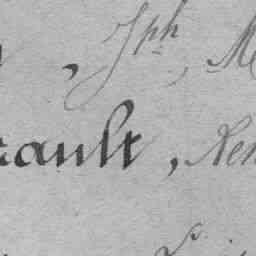 , Jph, M
rault, Ren